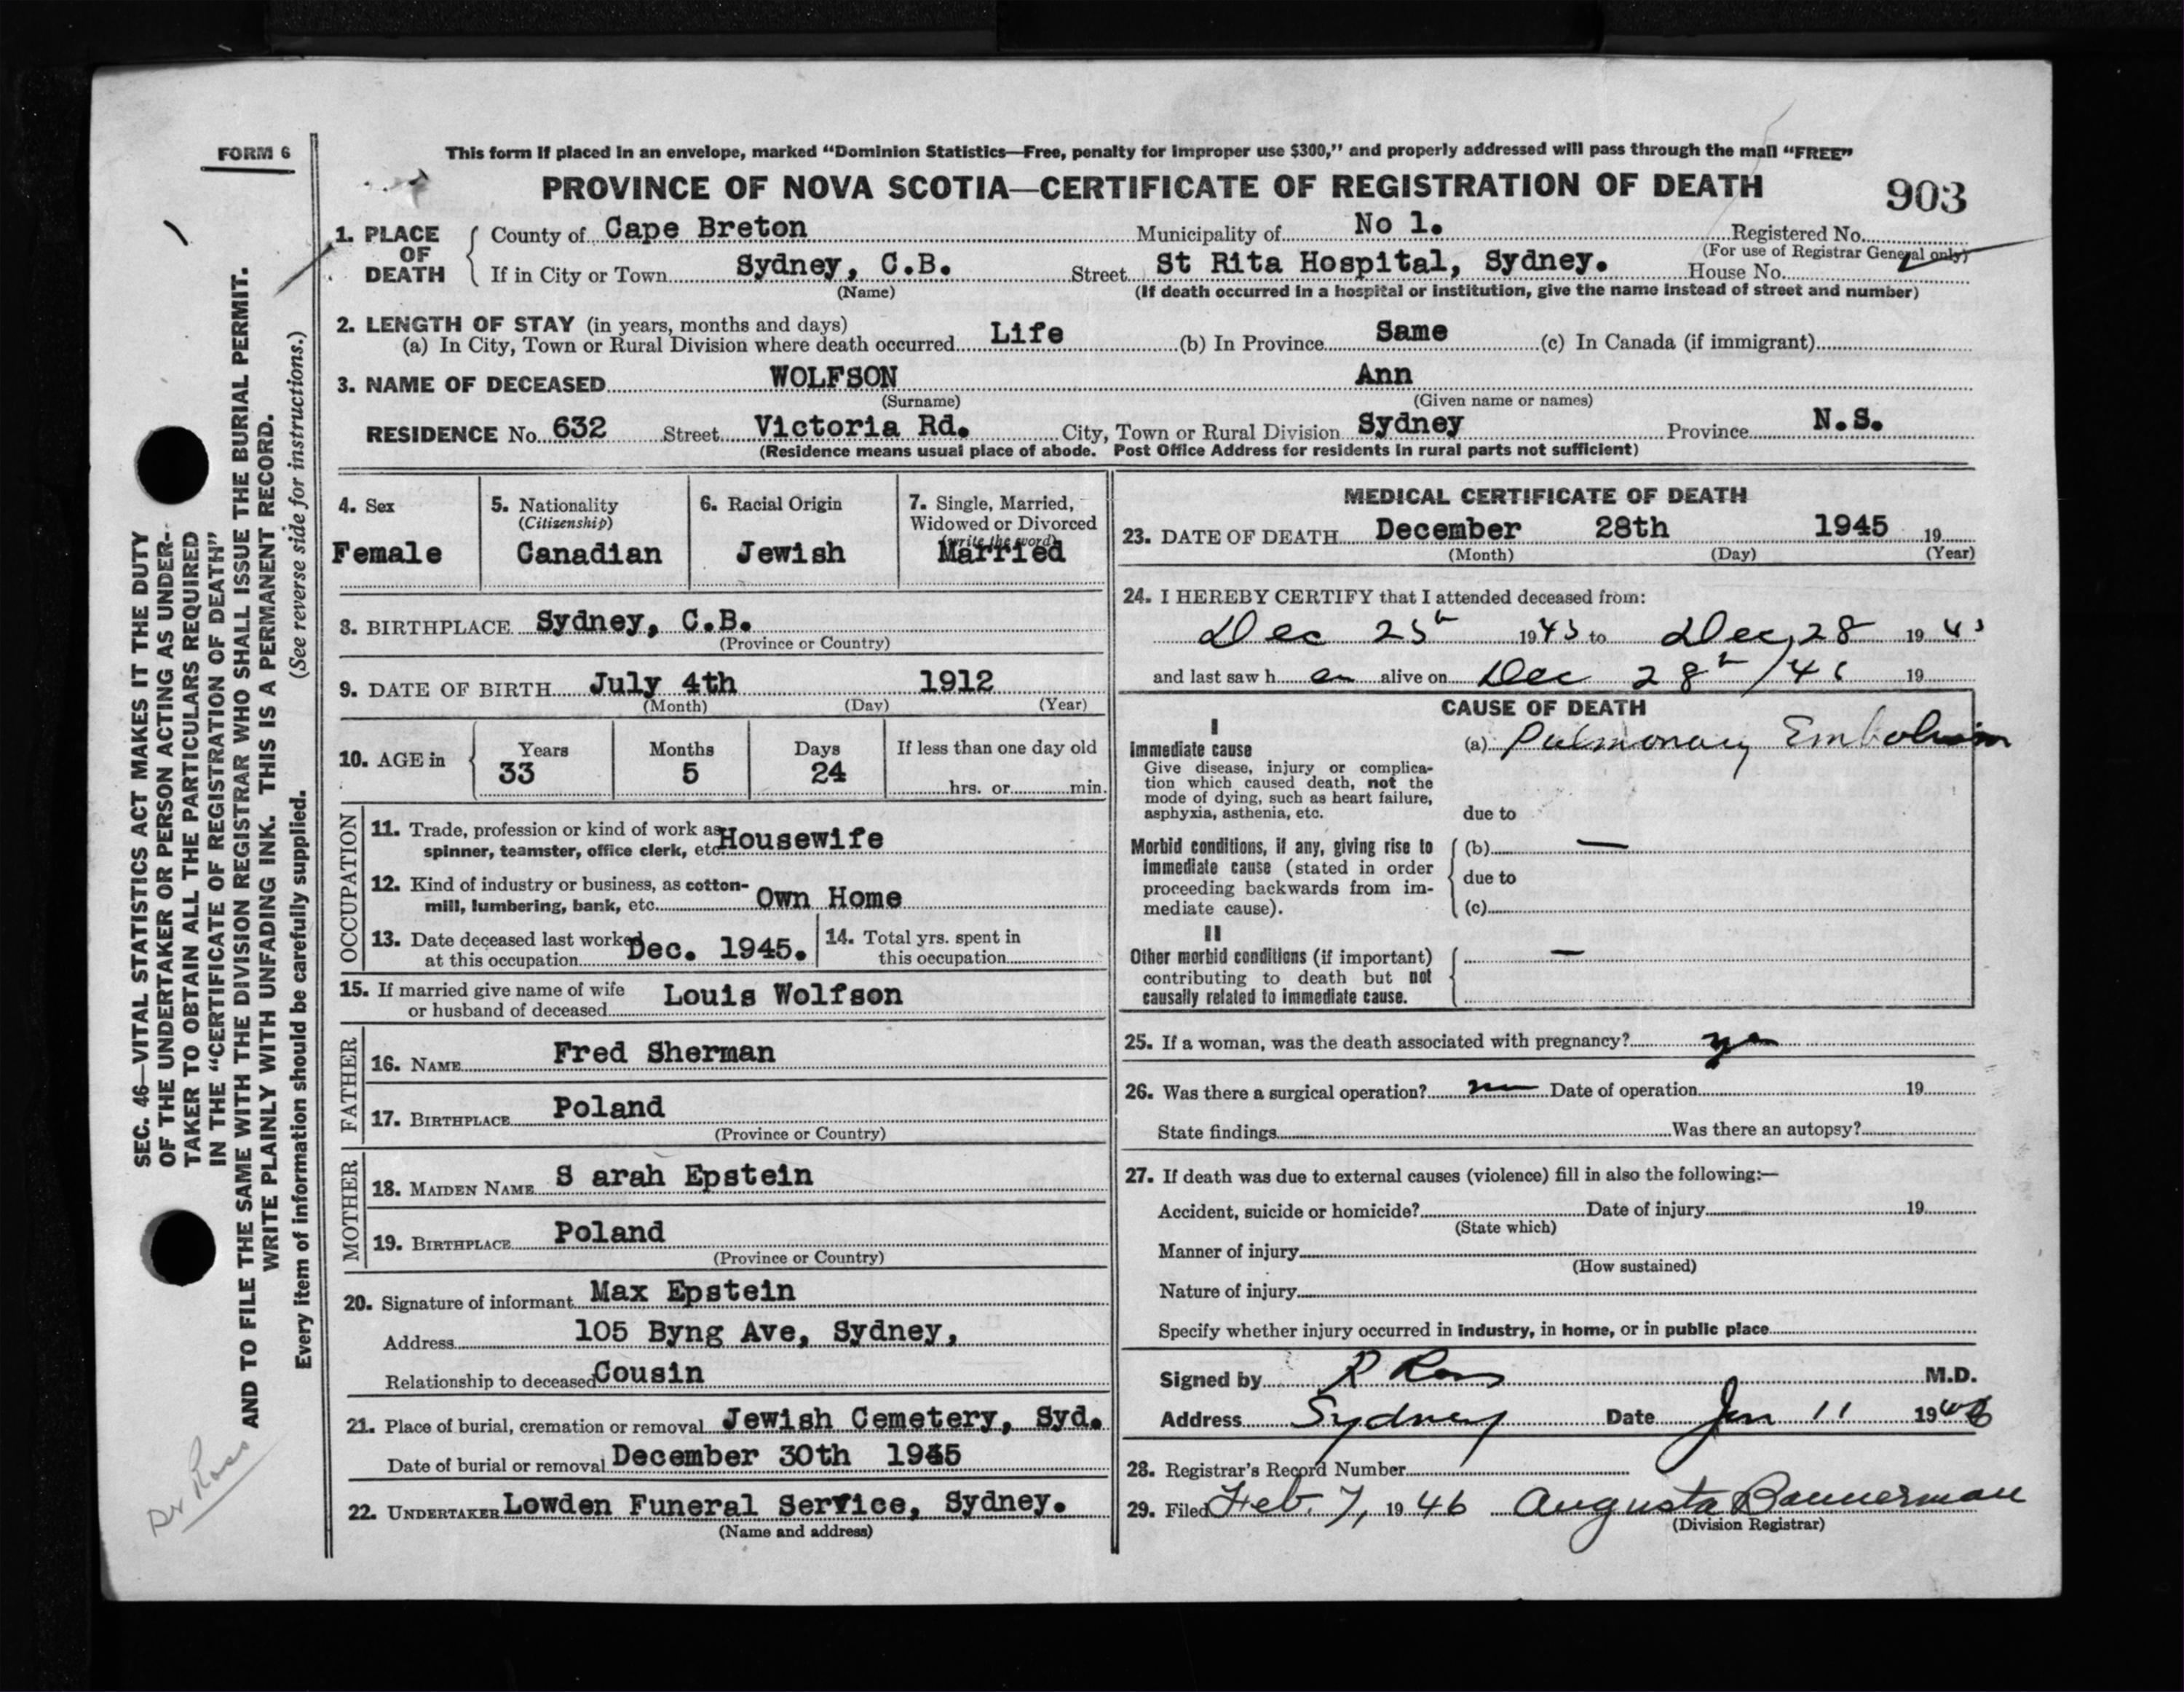 FORM 6
This form if placed in an envelope, marked “Dominion Statistics—Free, penalty for improper use $300,” and properly addressed will pass through the mail “FREE”
PROVINCE OF NOVA SCOTIA—CERTIFICATE OF REGISTRATION OF DEATH
903
1. PLACE OF DEATH
County of Cape Breton Municipality of No 1. Registered No.
(For use of Registrar General only)
If in City or Town Sydney, C.B. Street St Rita Hospital, Sydney. House No.
(Name) (If death occurred in a hospital or institution, give the name instead of street and number)
2. LENGTH OF STAY (in years, months and days)
(a) In City, Town or Rural Division where death occurred Life (b) In Province Same (c) In Canada (if immigrant)
3. NAME OF DECEASED WOLFSON Ann
(Surname) (Given name or names)
RESIDENCE No. 632 Street Victoria Rd. City, Town or Rural Division Sydney Province N.S.
(Residence means usual place of abode. Post Office Address for residents in rural parts not sufficient)
4. Sex
Female
5. Nationality
(Citizenship)
Canadian
6. Racial Origin
Jewish
7. Single, Married,
Widowed or Divorced
(write the word)
Married
8. BIRTHPLACE Sydney, C.B.
(Province or Country)
9. DATE OF BIRTH July 4th 1912
(Month) (Day) (Year)
10. AGE in
Years Months Days If less than one day old
33 5 24
hrs. or min.
OCCUPATION
11. Trade, profession or kind of work as
spinner, teamster, office clerk, etc. Housewife
12. Kind of industry or business, as cotton-
mill, lumbering, bank, etc. Own Home
13. Date deceased last worked
at this occupation Dec. 1945.
14. Total yrs. spent in
this occupation
15. If married give name of wife
or husband of deceased Louis Wolfson
FATHER
16. NAME Fred Sherman
17. BIRTHPLACE Poland
(Province or Country)
MOTHER
18. MAIDEN NAME S arah Epstein
19. BIRTHPLACE Poland
(Province or Country)
20. Signature of informant Max Epstein
Address 105 Byng Ave, Sydney,
Relationship to deceased Cousin
21. Place of burial, cremation or removal Jewish Cemetery, Syd.
Date of burial or removal December 30th 1945
22. UNDERTAKER Lowden Funeral Service, Sydney.
(Name and address)
MEDICAL CERTIFICATE OF DEATH
23. DATE OF DEATH December 28th 1945 19
(Month) (Day) (Year)
24. I HEREBY CERTIFY that I attended deceased from:
Dec 25th 1945 to Dec, 28 1945
and last saw h er alive on Dec 28th /45 19
CAUSE OF DEATH
I
Immediate cause
(a) Pulmonary Embolism
Give disease, injury or complica-
tion which caused death, not the
mode of dying, such as heart failure,
asphyxia, asthenia, etc.
due to
Morbid conditions, if any, giving rise to
immediate cause (stated in order
proceeding backwards from im-
mediate cause).
(b) —
due to
(c)
II
Other morbid conditions (if important)
contributing to death but not
causally related to immediate cause.
—
25. If a woman, was the death associated with pregnancy? yes
26. Was there a surgical operation? no Date of operation 19
State findings Was there an autopsy?
27. If death was due to external causes (violence) fill in also the following:—
Accident, suicide or homicide? Date of injury 19
(State which)
Manner of injury
(How sustained)
Nature of injury
Specify whether injury occurred in industry, in home, or in public place
Signed by R Ross M.D.
Address Sydney Date Jan 11 1946
28. Registrar's Record Number
29. Filed Feb. 7, 1946 Augusta Bannerman
(Division Registrar)
SEC. 46—VITAL STATISTICS ACT MAKES IT THE DUTY
OF THE UNDERTAKER OR PERSON ACTING AS UNDER-
TAKER TO OBTAIN ALL THE PARTICULARS REQUIRED
IN THE “CERTIFICATE OF REGISTRATION OF DEATH”
AND TO FILE THE SAME WITH THE DIVISION REGISTRAR WHO SHALL ISSUE THE BURIAL PERMIT.
WRITE PLAINLY WITH UNFADING INK. THIS IS A PERMANENT RECORD.
Every item of information should be carefully supplied. (See reverse side for instructions.)
Dr Ross